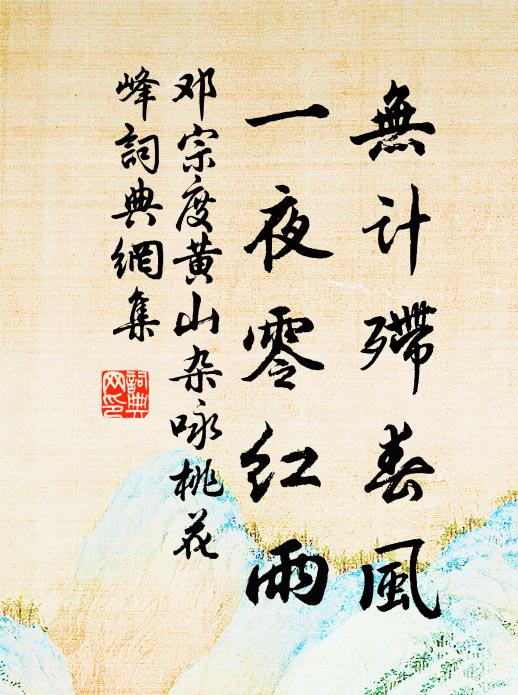 無计殢春風
一夜零红雨
邓宗度黄山杂咏桃花
峰詞典網集
詞典
网印